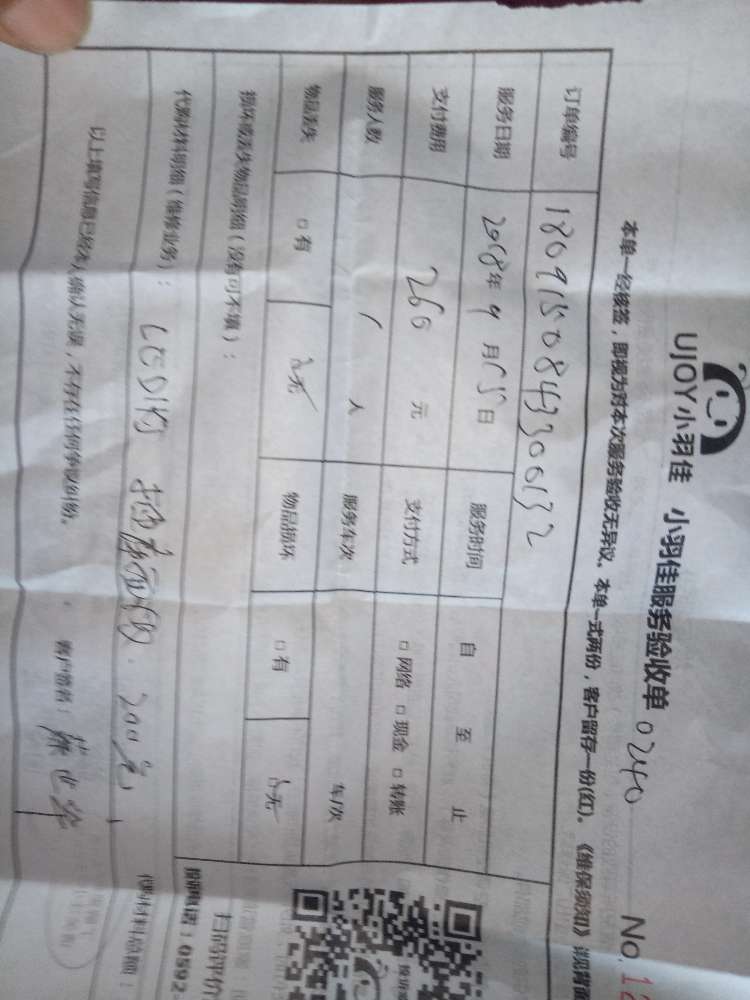 UJOY小羽佳 小羽佳服务验收单 0240 No.
本单一经接签，即视为对本次服务验收无异议。本单一式两份，客户留存一份(红)。《维保须知》
订单编号 1809150843300132
服务日期 2018年9月15日 服务时间 自 至 止
支付费用 266 元 支付方式 □网络 □现金 □转账
服务人数 1 人 服务车次 车/次
物品丢失 □有 □无 物品损坏 □有 □无
损坏或丢失物品明细（没有可不填）：
扫码评价
代购材料明细（维修业务）： 投诉电话：0592-
LED灯 200元
代购材料总额：
以上填写信息已经本人确认无误，不存在任何争议纠纷。 客户签名：